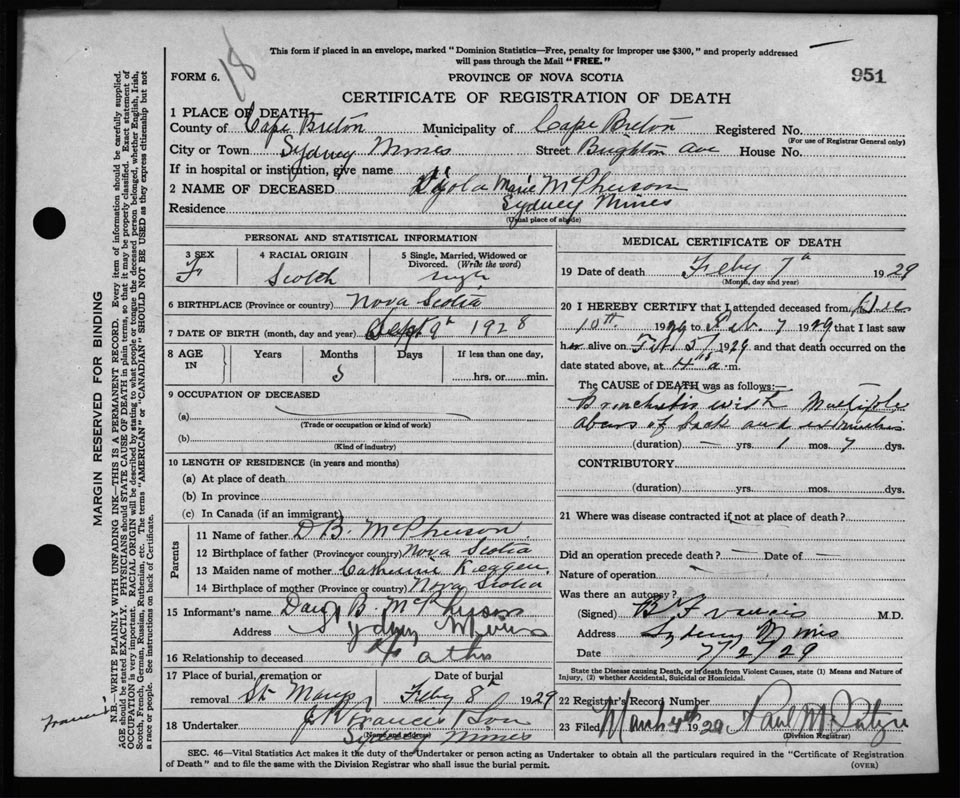 This form if placed in an envelope, marked "Dominion Statistics—Free, penalty for improper use $300," and properly addressed
will pass through the Mail "FREE."
18
951
FORM 6.
PROVINCE OF NOVA SCOTIA
CERTIFICATE OF REGISTRATION OF DEATH
1 PLACE OF DEATH
County of Cape Breton Municipality of Cape Breton Registered No.
(For use of Registrar General only)
City or Town Sydney Mines Street Brighton Ave House No.
If in hospital or institution, give name
2 NAME OF DECEASED Marie McPherson
Residence Sydney Mines
(Usual place of abode)
PERSONAL AND STATISTICAL INFORMATION
3 SEX 4 RACIAL ORIGIN 5 Single, Married, Widowed or
Divorced. (Write the word)
F Scotch single
6 BIRTHPLACE (Province or country) Nova Scotia
7 DATE OF BIRTH (month, day and year) Sept 9th 1928
8 AGE IN Years Months Days If less than one day,
5 hrs. or min.
9 OCCUPATION OF DECEASED
(a)
(Trade or occupation or kind of work)
(b)
(Kind of industry)
10 LENGTH OF RESIDENCE (in years and months)
(a) At place of death
(b) In province
(c) In Canada (if an immigrant)
Parents
11 Name of father D.B. McPherson
12 Birthplace of father (Province or country) Nova Scotia
13 Maiden name of mother Catherine
14 Birthplace of mother (Province or country) Nova Scotia
15 Informant's name B. McPherson
Address Sydney Mines
16 Relationship to deceased Father
17 Place of burial, cremation or Date of burial
removal St Marys Feby 8th 1929
18 Undertaker Francis & Son
(Name and address)
Sydney Mines
MEDICAL CERTIFICATE OF DEATH
19 Date of death Feby 7th 1929
(Month, day and year)
20 I HEREBY CERTIFY that I attended deceased from Dec
10th 1929 to Feb. 7 1929 that I last saw
her alive on Feb 5/ 1929 and that death occurred on
date stated above, at 4 a.m.
The CAUSE of DEATH was as follows:—
Bronchitis with Multiple
abcess of back and extremities
(duration) — yrs. 1 mos. 7 dys.
CONTRIBUTORY
(duration) yrs. mos. dys.
21 Where was disease contracted if not at place of death?
Did an operation precede death? — Date of —
Nature of operation
Was there an autopsy?
(Signed) B Francis M.D.
Address Sydney Mines
Date 7/2/29
State the Disease causing Death, or in death from Violent Causes, state (1) Means and Nature of
Injury, (2) whether Accidental, Suicidal or Homicidal.
22 Registrar's Record Number
23 Filed March 4th 1929
(Division Registrar)
SEC. 46—Vital Statistics Act makes it the duty of the Undertaker or person acting as Undertaker to obtain all the particulars required in the "Certificate of Registration
of Death" and to file the same with the Division Registrar who shall issue the burial permit.
(OVER)
MARGIN RESERVED FOR BINDING
N.B.—WRITE PLAINLY WITH UNFADING INK—THIS IS A PERMANENT RECORD. Every item of information should be carefully supplied.
AGE should be stated EXACTLY. PHYSICIANS should STATE CAUSE OF DEATH in plain terms, so that it may be properly classified. Exact statement of
OCCUPATION is very important. RACIAL ORIGIN will be described by stating to what people or tongue the deceased person belonged, whether English, Irish,
Scotch, French, German, Russian, Ruthenian, etc. The terms "AMERICAN" or "CANADIAN" SHOULD NOT BE USED as they express citizenship but not
a race or people. See instructions on back of Certificate.
Francis